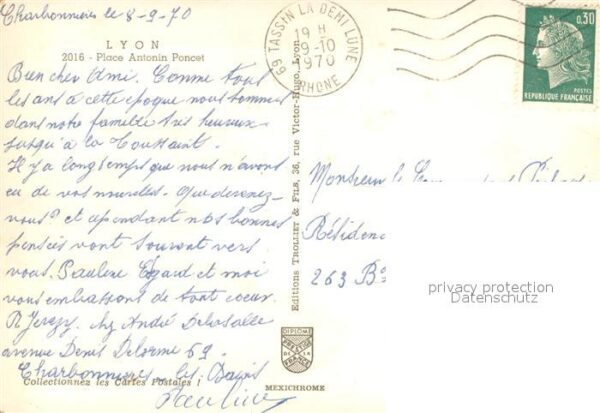 Charbonnières le 8-9-70
LYON
2016 - Place Antonin Poncet
Bien cher Ami. Comme tous
les ans à cette epoque nous sommes
dans notre famille très heureux
jusqu'à la Toussaint.
Il y a longtemps que nous n'avons
eu de vos nouvelles. Que devenez-
vous? et cependant nos bonnes
pensées vont souvent vers
vous. Pauline et moi
vous embrassons de tout coeur.
chez André Delasalle
avenue Denis Delorme 69.
Charbonnières-les-Bains
Pauline
Collectionnez les Cartes Postales !
Editions TROLLIET & FILS, 36, rue Victor-Hugo, Lyon.
DIPLOME
PRESTIGE
DE LA
FRANCE
MEXICHROME
69 TASSIN LA DEMI LUNE
19 H
9-10
1970
RHONE
0,30
POSTES
REPUBLIQUE FRANÇAISE
Monsieur le
Résiden
263 Bd
privacy protection
Datenschutz